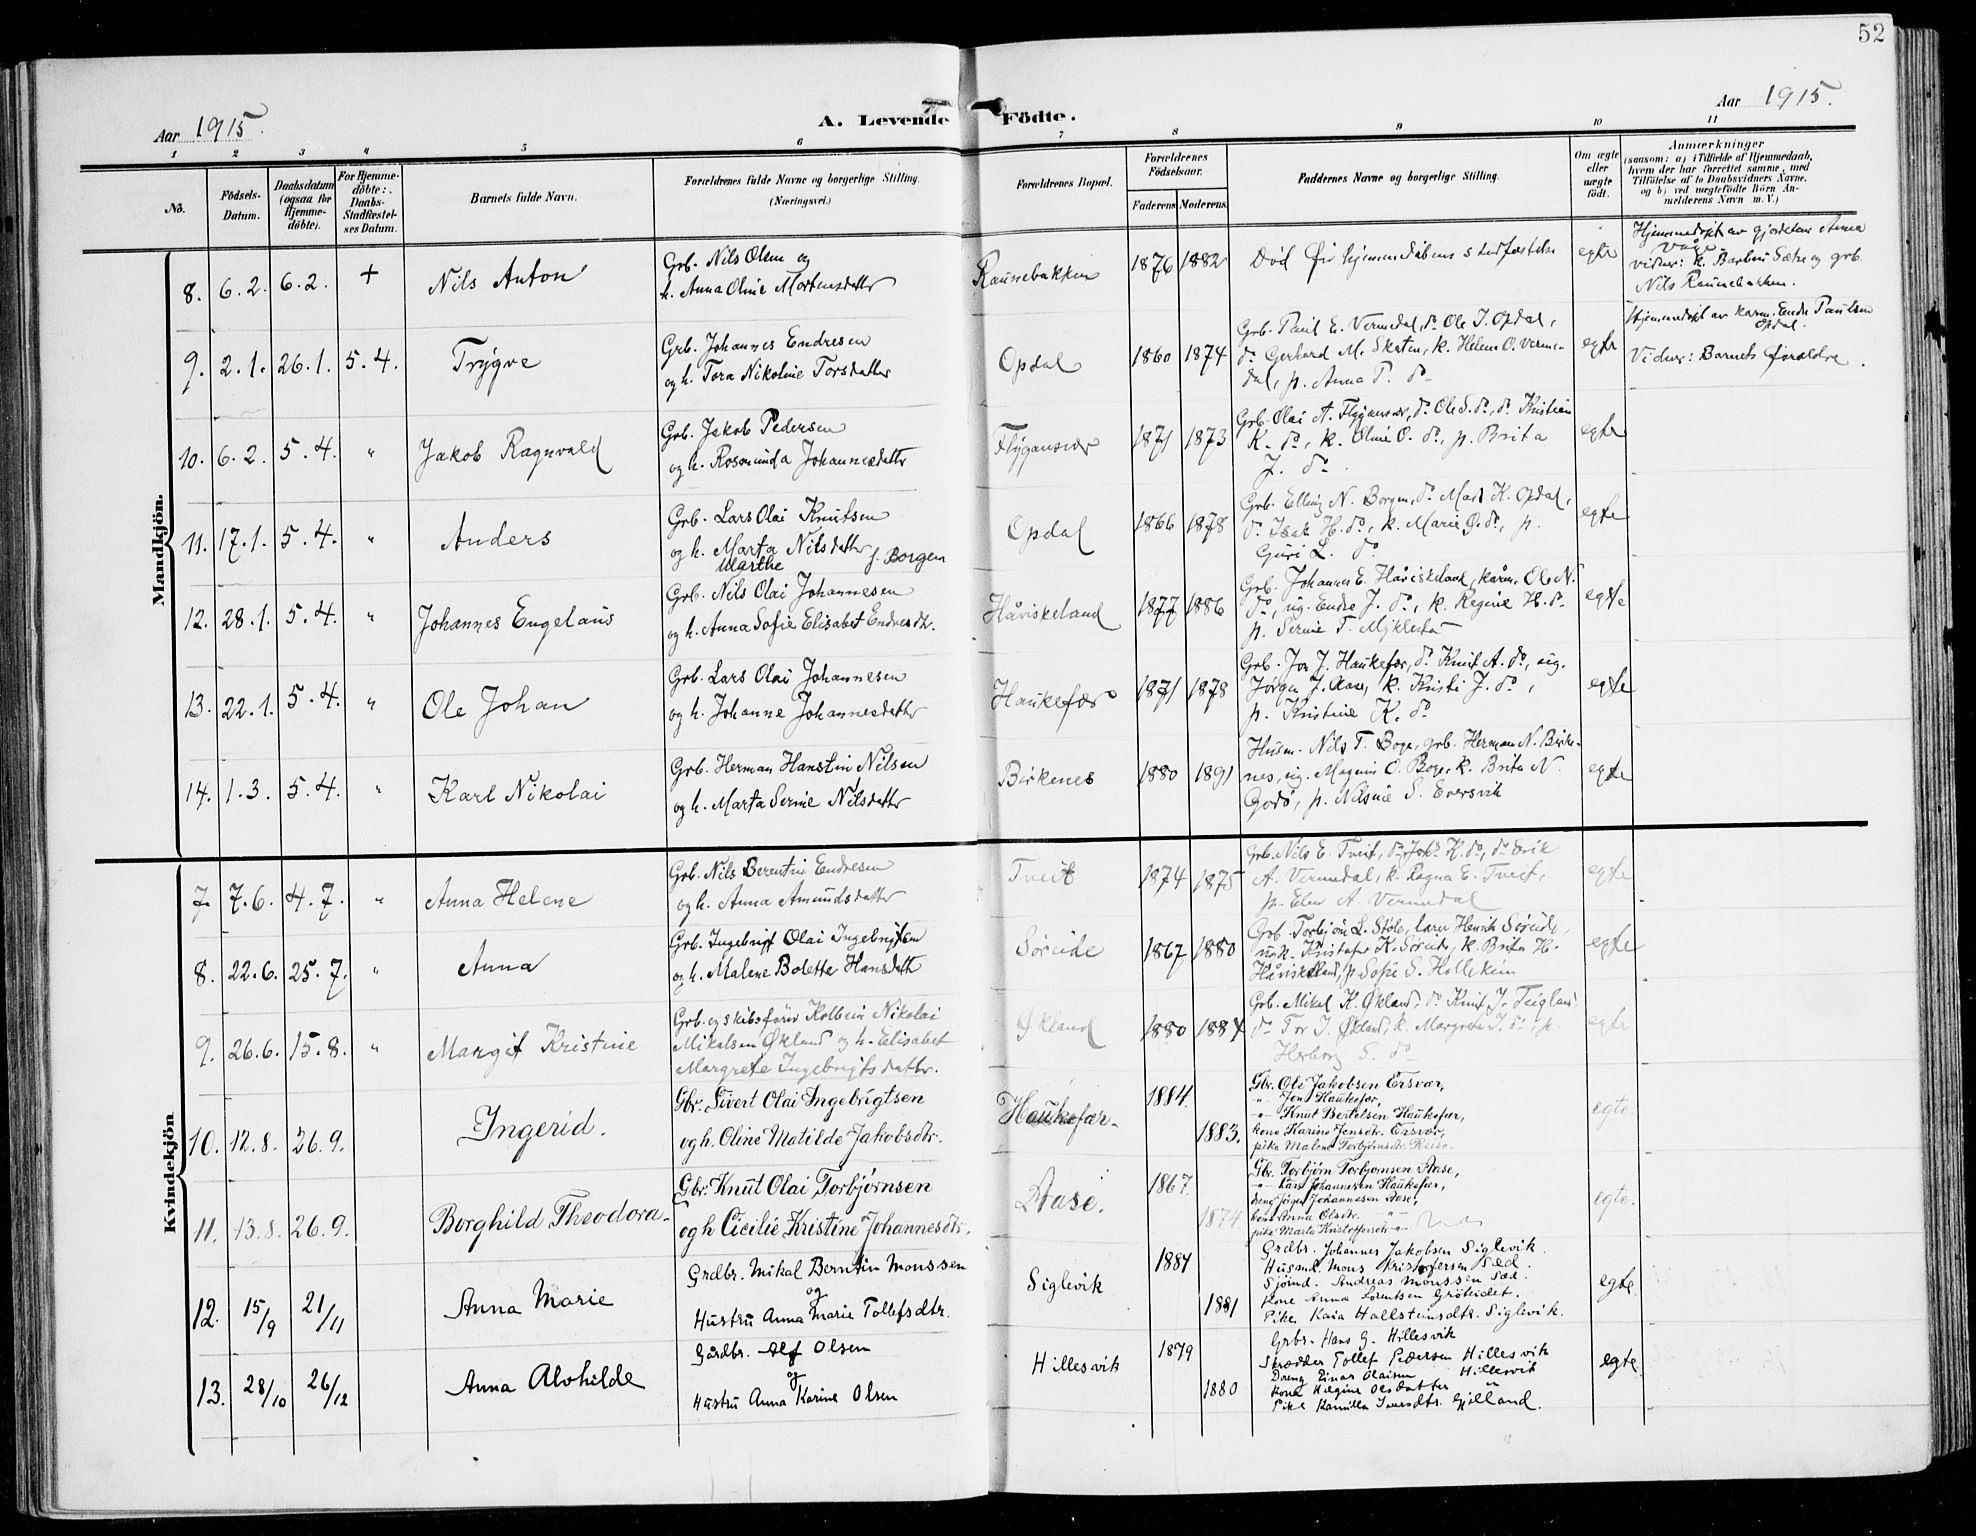 52
Aar 1915.
A. Levende Födte.
Aar 1915.
1 2 3 4 5 6 7 8 9 10 11
No.
Födsels-Datum.
Daabsdatum (ogsaa for Hjemme-döbte).
For Hjemme-döbte: Daabs-Stadfæstel-ses Datum.
Barnets fulde Navn.
Forældrenes fulde Navne og borgerlige Stilling.
(Næringsvei.)
Forældrenes Bopæl.
Forældrenes Födselsaar.
Faderens Moderens
Faddernes Navne og borgerlige Stilling.
Om ægte eller uægte födt.
Anmærkninger
(saasom: a) i Tilfælde af Hjemmedaab,
hvem der har forrettet samme, med
Tilföielse af to Daabsvidners Navne,
og b) ved uegtefödte Börn An-
melderens Navn m. V.)
Mandkjön.
8. 6.2. 6.2. + Nils Anton
Grb. Nils Olsen og
h. Anna Oline Mortensdattr
Raunebakken 1876 1882
Död før hjemmedåbens stadfæstelse
egte
Hjemmedøpt av gjordetmor Anna
Våge
vidner: k. Sætre og grb.
Nils Raunebakken.
9. 2.1. 26.1. 5.4. Trygve
Grb. Johannes Endresen
og h. Tora Nikoline Torsdatter
Opdal 1860 1874
Grb. Paul E. Vermedal, do Ole J. Opdal,
do Gerhard M. k. Helene O. Verme-
dal, p. Anna P. do
egte
Hjemmedøpt av Endre Paulsen
Opdal.
Vidner: Barnets forældre.
10. 6.2. 5.4. " Jakob Ragnvald
Grb. Jakob Pedersen
og h. Rosmunda Johannesdattr
Flygansvær 1871 1873
Grb. Olai A. Flygansvær, do Ole S. do, do Kristian
K. do, k. Oline O. do, p. Brita
J. do.
egte
11. 17.1. 5.4. " Anders
Grb. Lars Olai Knutsen
og h. Marta Nilsdatter f. Borgen
Marthe
Opdal 1866 1878
Grb. Elling N. Borgen, do Mads K. Opdal,
do Isak H. do, k. Marie O. do, p.
Guri L. do
egte
12. 28.1. 5.4. " Johannes Engelaus
Grb. Nils Olai Johannesen
og h. Anna Sofie Elisabet Endresdtr.
Håviskeland 1877 1886
Grb. Johannes E. Håviskeland, Ole N.
do, ug. Endre J. do, k. Regine H. do
p. Serine T. Myklestø
egte
13. 22.1. 5.4. " Ole Johan
Grb. Lars Olai Johannesen
og h. Johanne Johannesdattr
Haukefær 1871 1878
Grb. Jon J. Haukefær, do Knut A. do, ug.
Jørgen J. Aase, k. Kristi J. do,
p. Kristine K. do
egte
14. 1.3. 5.4. " Karl Nikolai
Grb. Herman Hanstin Nilsen
og h. Marta Serine Nilsdattr
Birkenes 1880 1891
Husm. Nils T. Boge, grb. Herman N. Birke-
nes, ug. Magnus O. Boge, k. Brita N.
Godø, p. Nilsine S. Eversvik
egte
Kvindekjön
7. 7.6. 4.7. " Anna Helene
Grb. Nils Berentin Endresen
og h. Anna Amundsdatter
Tveit 1874 1875
Grb. Nils E. Tveit, do Joh. K. do, do Erik
A. Vermedal, k. Ragna E. Tveit,
p. Elen A. Vermedal
egte
8. 22.6. 25.7. " Anna
Grb. Ingebrigt Olai Ingebrigtsen
og h. Malene Bolette Hansdattr
Søreide 1867 1880
Grb. Torbjørn L. Støle, Henrik Søreide,
ungk. Kristofer K. Søreide, k. Brita H.
Håviskeland, p. Sofie S. Hollekim
egte
9. 26.6. 15.8. " Margit Kristine
Grb. og skibsfører Kolbein Nikolai
Mikalsen Økland og h. Elisabet
Margrete Ingebrigtsdattr.
Økland 1880 1884
Grb. Mikal K. Økland, do Knut J. Teigland,
do Tor J. Økland, k. Margrete J. do, p.
Herborg S. do
egte
10. 12.8. 26.9. Ingerid.
Gbr. Sivert Olai Ingebrigtsen
og h. Oline Matilde Jakobsdtr.
Haukefær. 1884. 1883.
Gbr. Ole Jakobsen Ersvær,
-"- Jon Haukefær,
-"- Knut Bertelsen Haukefær,
kone Karine Jensdtr. Ersvær,
pike Malene Torbjørnsdtr. Reiso.
egte.
11. 13.8. 26.9. Borghild Theodora.
Gbr. Knut Olai Torbjørnsen
og h Cicilie Kristine Johannesdtr.
Aase. 1867. 1874.
Gbr. Torbjørn Torbjørnsen Aase,
-"- Lars Johannesen Haukefær,
dreng Jørgen Johannesen Aase,
kone Anna Olsdtr. -"-
pike Marta Kristoffersdtr. -"-
egte.
12. 15/9 21/11 Anna Marie
Grdbr. Mikal Berntin Monssen
og
Hustru Anna Marie Tollefsdtr.
Siglevik 1884 1881
Grdbr. Johannes Jakobsen Siglevik.
Husmd. Mons Kristofersen Sæd.
Sjømd. Andreas Monssen Sæd.
Kone Anna Lorentsen Grøteidet.
Pike Kaia Hallsteinsdtr. Siglevik.
egte
13. 28/10 26/12 Anna Alvhilde
Gårdbr. Alf Olsen
og
Hustru Anna Karine Olsen
Hillesvik 1879 1880
Grbr. Hans G. Hillesvik
Skrædder Tollef Pedersen Hillesvik
Dreng Einar Olaisen Hillesvik
Kona Regine Olsdatter "
Pike Kamilla Iversdtr. Gjilland.
egte